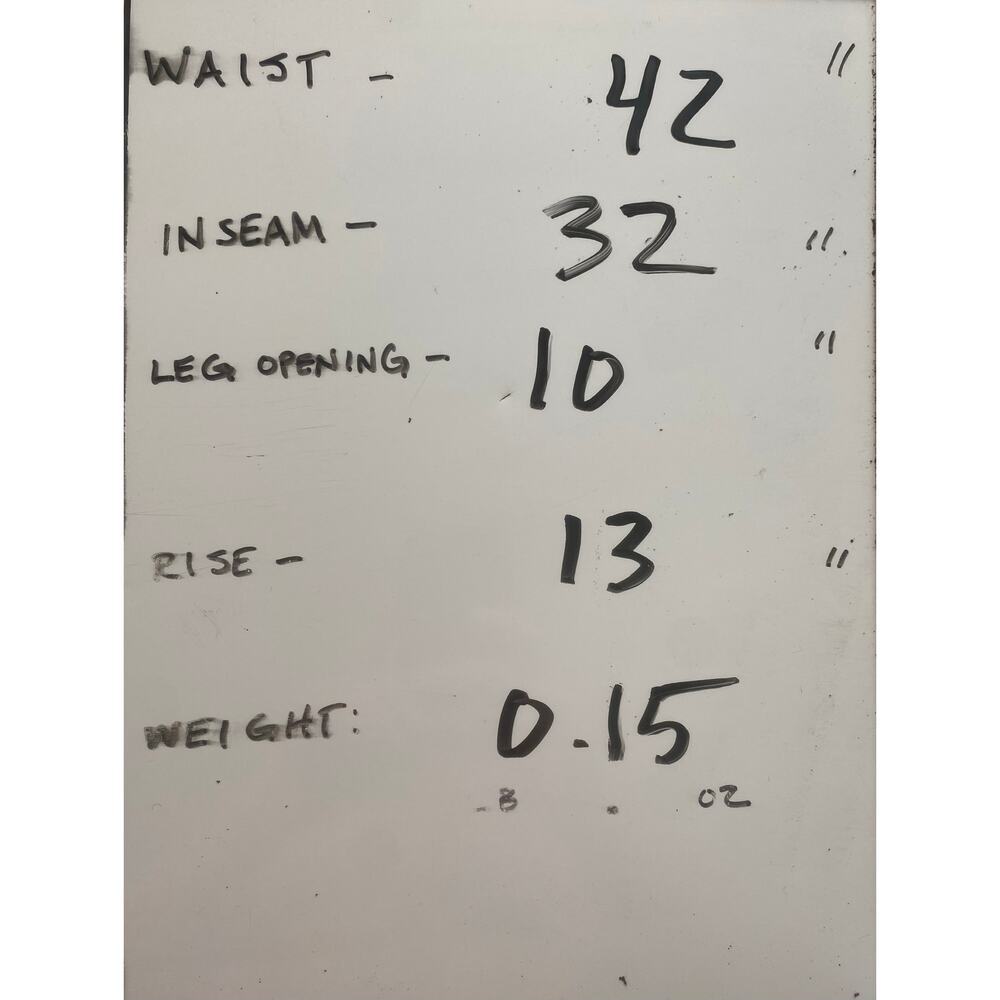 WAIST - 42 "
INSEAM - 32 "
LEG OPENING - 10 "
RISE - 13 "
WEIGHT: 0.15
8 . oz